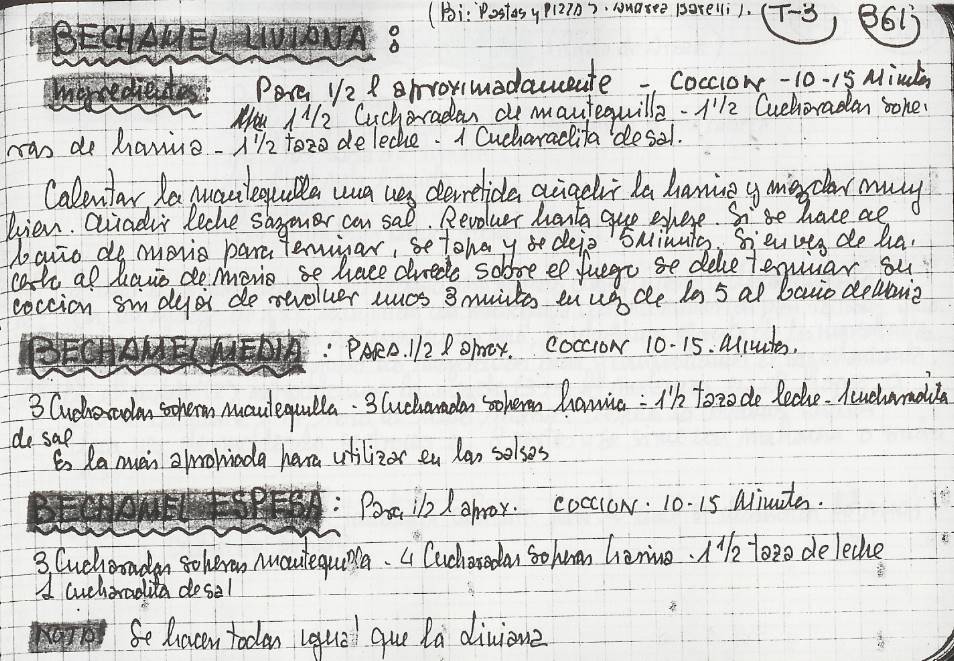 (Bi: Pastas y PIZZAS. Andrea Barelli). T-3, 861;
BECHAMEL LIVIANA:
Ingredientes: Para 1/2 l aproximadamente - COCCION - 10-15 Minutos
1 1/2 Cucharadas de mantequilla - 1 1/2 Cucharadas sope-
ras de harina - 1 1/2 taza de leche - 1 Cucharadita de sal.
Calentar la mantequilla una vez derretida añadir la harina y mezclar muy
bien. Añadir leche sazonar con sal. Revolver hasta que espese. Si se hace al
baño de maria para terminar, se tapa y se deja 5 Minutos. Si en vez de ha-
cerlo al baño de maria se hace directo sobre el fuego se debe terminar su
coccion sin dejar de revolver unos 3 minutos en vez de los 5 al baño de Maria
BECHAMEL MEDIA: PARA 1/2 l aprox. COCCION 10-15. Minutos.
3 Cucharadas soperas mantequilla - 3 Cucharadas soperas harina - 1 1/2 taza de leche - 1 cucharadita
de sal
Es la más apropiada para utilizar en las salsas
BECHAMEL ESPESA: Para 1/2 l aprox. COCCION. 10-15 Minutos.
3 Cucharadas soperas mantequilla - 4 Cucharadas soperas harina - 1 1/2 taza de leche
1 cucharadita de sal
NOTA: Se hacen todas igual que la liviana